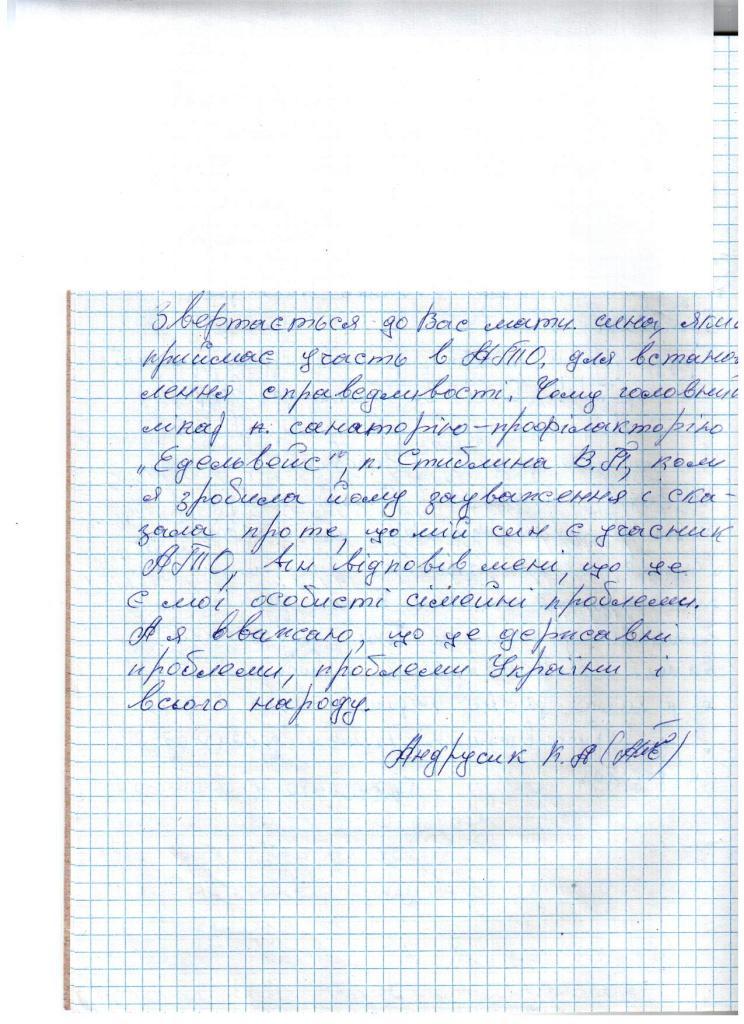 Звертається до Вас мати сина, який
приймає участь в АТО, для встанов
лення справедливості. Чому головний
лікар н. санаторію-профілакторію
„Едельвейс", п. Стиблина В.П, коли
я зробила йому зауваження і ска-
зала про те, що мій син є учасник
АТО, він відповів мені, що це
є мої особисті сімейні проблеми.
А я вважаю, що це державні
проблеми, проблеми України і
всього народу.
Андрусик К. А